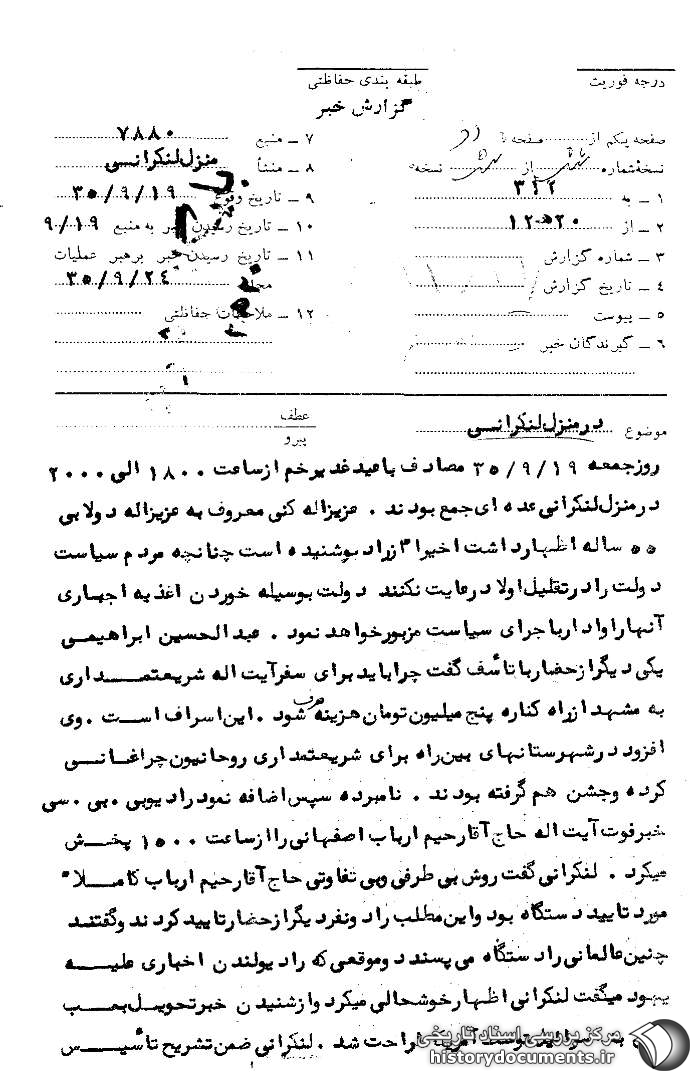 درجه فوریت
طبقه بندی حفاظتی
گزارش خبر
صفحه یکم از صفحه
نسخه شماره شش از شش نسخه
۱ ــ به ۳۲۲
۲ ــ از ۲۰ ه ۱۲
۳ ــ شماره گزارش
۴ ــ تاریخ گزارش
۵ ــ پیوست
۶ ــ گیرندگان خبر
۷ ــ منبع ۷۸۸۰
۸ ــ منشأ منزل لنکرانی
۹ ــ تاریخ وقوع ۳۵/۹/۱۹
۱۰ ــ تاریخ رسیدن خبر به منبع ۹/۱۹
۱۱ ــ تاریخ رسیدن خبر برهبر عملیات
محل ۳۵/۹/۲۴
۱۲ ــ ملاحظات حفاظتی
موضوع در منزل لنکرانی
عطف
پیرو
روزجمعه ۳۵/۹/۱۹ مصادف باعید غدیرخم ازساعت ۱۸۰۰ الی ۲۰۰۰
درمنزل لنکرانی عده ای جمع بودند . عزیزاله کنی معروف به عزیزاله دولابی
۵۵ ساله اظهارداشت اخیرا" زیاد بوشنیده است چنانچه مردم سیاست
دولت رادرتقلیل اولاد رعایت نکنند دولت بوسیله خوردن اغذیه اجباری
آنهاراوادارباجرای سیاست مزبورخواهد نمود . عبدالحسین ابراهیمی
یکی دیگرازحضارباتأسف گفت چراباید برای سفرآیت اله شریعتمداری
به مشهد ازراه کناره پنج میلیون تومان هزینه صرف شود .این اسراف است .وی
افزود درشهرستانهای بین راه برای شریعتمداری روحانیون چراغانی
کرده وجشن هم گرفته بودند . نامبرده سپس اضافه نمود رادیوبی .بی .سی
خبرفوت آیت اله حاج آقارحیم ارباب اصفهانی راازساعت ۱۵۰۰ پخش
میکرد . لنکرانی گفت روش بی طرفی وبی تفاوتی حاج آقارحیم ارباب کاملا"
مورد تایید دستگاه بود واین مطلب رادونفر دیگرازحضارتایید کردند وگفتند
چنین عالمانی رادستگاه می پسندد وموقعی که رادیولندن اخباری علیه
یهود میگفت لنکرانی اظهارخوشحالی میکرد وازشنیدن خبرتحویل بمب
به اسرائیل توسط آمریکا ناراحت شد .لنکرانی ضمن تشریح تأسیس
مرکز بررسی اسناد تاریخی
historydocuments.ir